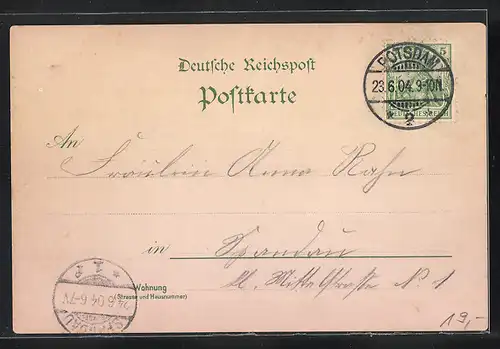 Deutsche Reichspost
Postkarte
POTSDAM
23.6.04. 9-10N.
* 2 *
5
An
Fräulein Anna Rahn
in Spandau
Kl. Mittelstrasse N. 1
Wohnung
(Strasse und Hausnummer)
SPANDAU
24.6.04.6-7V.
* 1 I
19,-